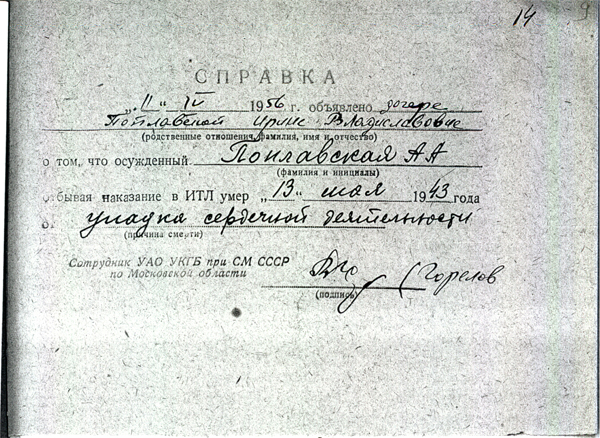 14 9
СПРАВКА
„ 11 " IV 1956 г. объявлено дочере
Поплавской Ирине Владиславовне
(родственные отношения, фамилия, имя и отчество)
о том, что осужденный Поплавская АА
(фамилия и инициалы)
отбывая наказание в ИТЛ умер „13" мая 1943 года
от упадка сердечной деятельности
(причина смерти)
Сотрудник УАО УКГБ при СМ СССР
по Московской области
(Горелов
(подпись)